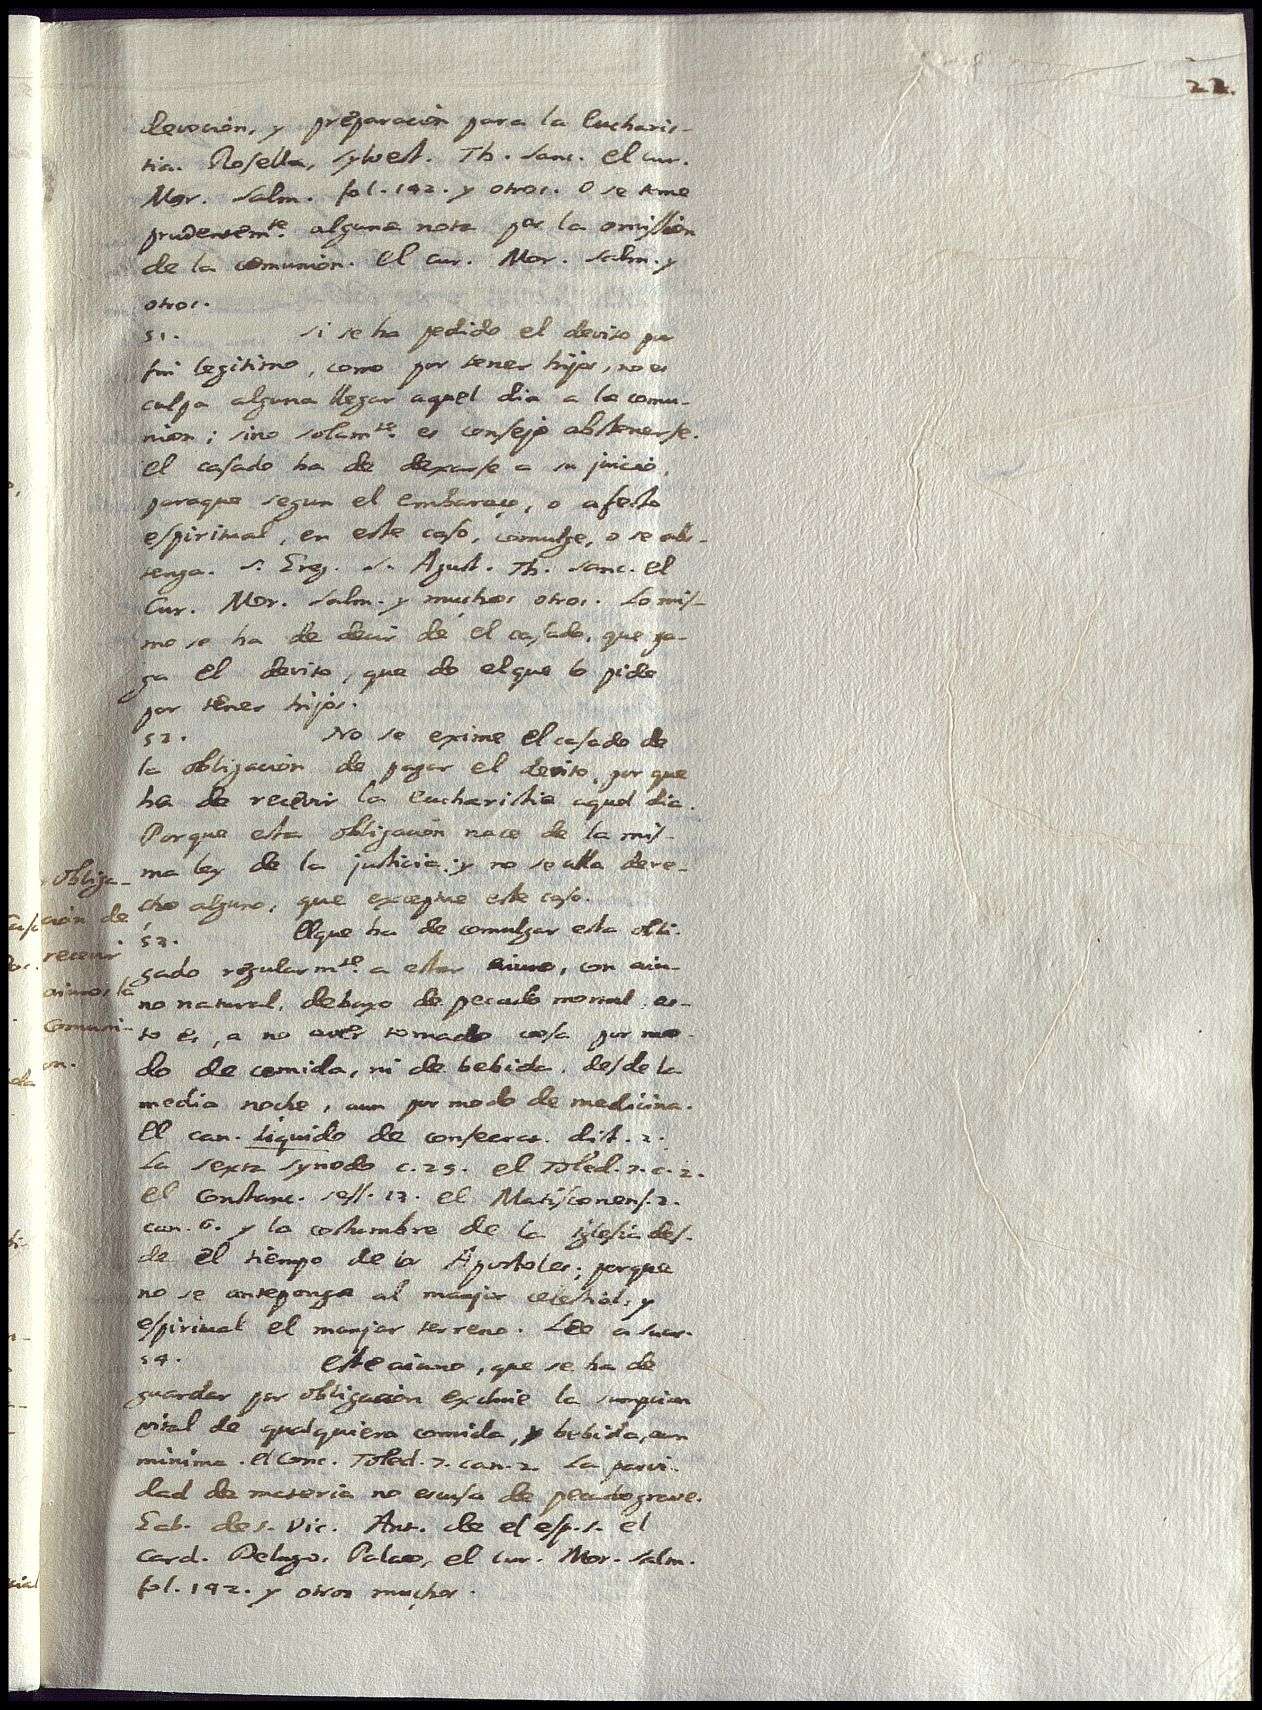 22.
devocion, y preparacion para la Eucharis-
tia. Rosella, Sylvest. Th. Sanc. el Cur.
Mor. Salm. fol. 142. y otros. O se teme
prudentemte. alguna nota por la omission
de la comunion. el Cur. Mor. Salm. y
otros.
51. Si se ha pedido el devito por
fin legitimo, como por tener hijos, no es
culpa alguna llegar aquel dia a la comu-
nion; sino solamte. es consejo abstenerse.
el casado ha de dexarse a su juicio,
paraque segun el embarazo, o afecto
espiritual, en este caso, comulge, o se abs-
tenga. S. Greg. S. Agust. Th. Sanc. el
Cur. Mor. Salm. y muchos otros. Lo mis-
mo se ha de decir de el casado, que pa-
ga el devito, que de elque lo pide
por tener hijos.
52. No se exime el casado de
la obligacion de pagar el devito, por que
ha de recevir la eucharistia aquel dia.
Porque esta obligacion nace de la mis-
ma ley de la justicia; y no se alla dere-
cho alguno, que exceptue este caso.
53. Elque ha de comulgar esta obli-
gado regularmte. a estar aiuno, con aiu-
no natural, debaxo de pecado mortal, es-
to es, a no aver tomado cosa por mo-
do de comida, ni de bebida, desde la
media noche, aun por modo de medicina.
El can. Liquido de consecrat. dist. 2.
La sexta Synodo c. 29. el Toled. 7. c. 2.
el Constanc. sess. 13. el Matisconens. 2.
can. 6. y la costumbre de la iglesia des-
de el tiempo de los Apostoles; porque
no se anteponga al manjar celestial, y
espiritual el manjar terreno. Leo a Suar.
54. Este aiuno, que se ha de
guardar por obligacion excluie la sumpcion
vital de qualquiera comida, y bebida, aun
minima. el Conc. Toled. 7. can. 2. La parvi-
dad de materia no escusa de pecado grave.
Gab. de S. Vic. Ant. de el esp. S. el
Card. Delugo. Palao, el Cur. Mor. Salm.
fol. 142. y otros muchos.
obliga-
cion de
recevir
aiunos la
comuni-
on.